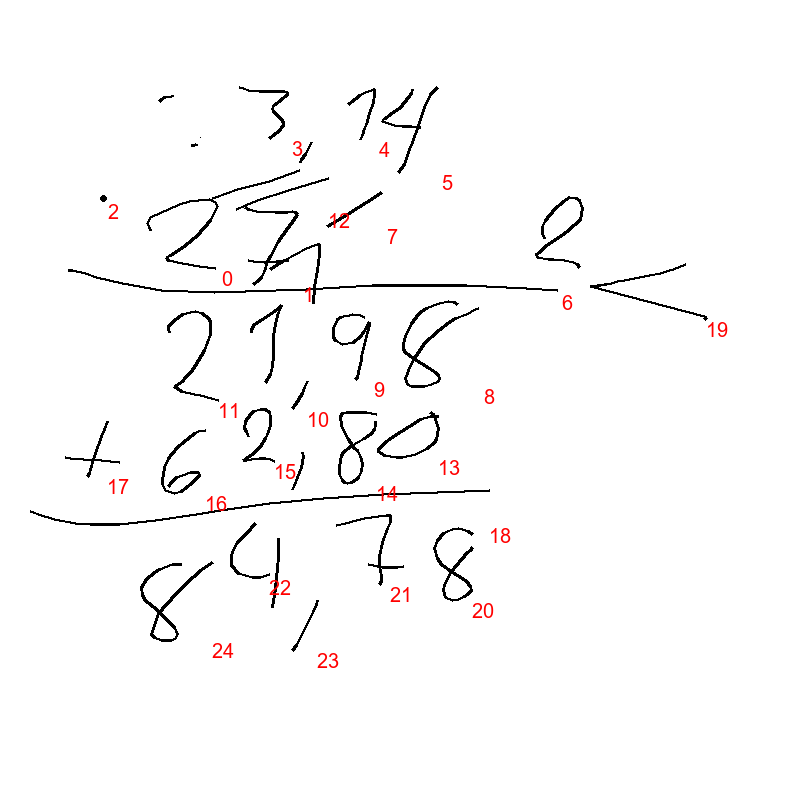 3,14
. 27
2
21,98
+ 62,80
84,78
2 3 4 5 12 7 0 1 6 19 11 10 9 8 17 16 15 14 13 18 22 21 20 24 23